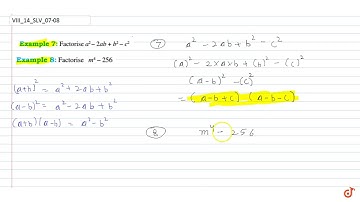 VIII_14_SLV_07-08
Example 7: Factorise a² – 2ab + b² – c²
Example 8: Factorise m⁴ – 256
(a+b)² = a² + 2ab + b²
(a-b)² = a² - 2ab + b²
(a+b)(a-b) = a² - b²
⑦ a² - 2ab + b² - c²
(a)² - 2×a×b + (b)² - (c)²
(a-b)² - (c)²
= (a-b+c) (a-b-c)
⑧ m⁴ - 256
doubtnut